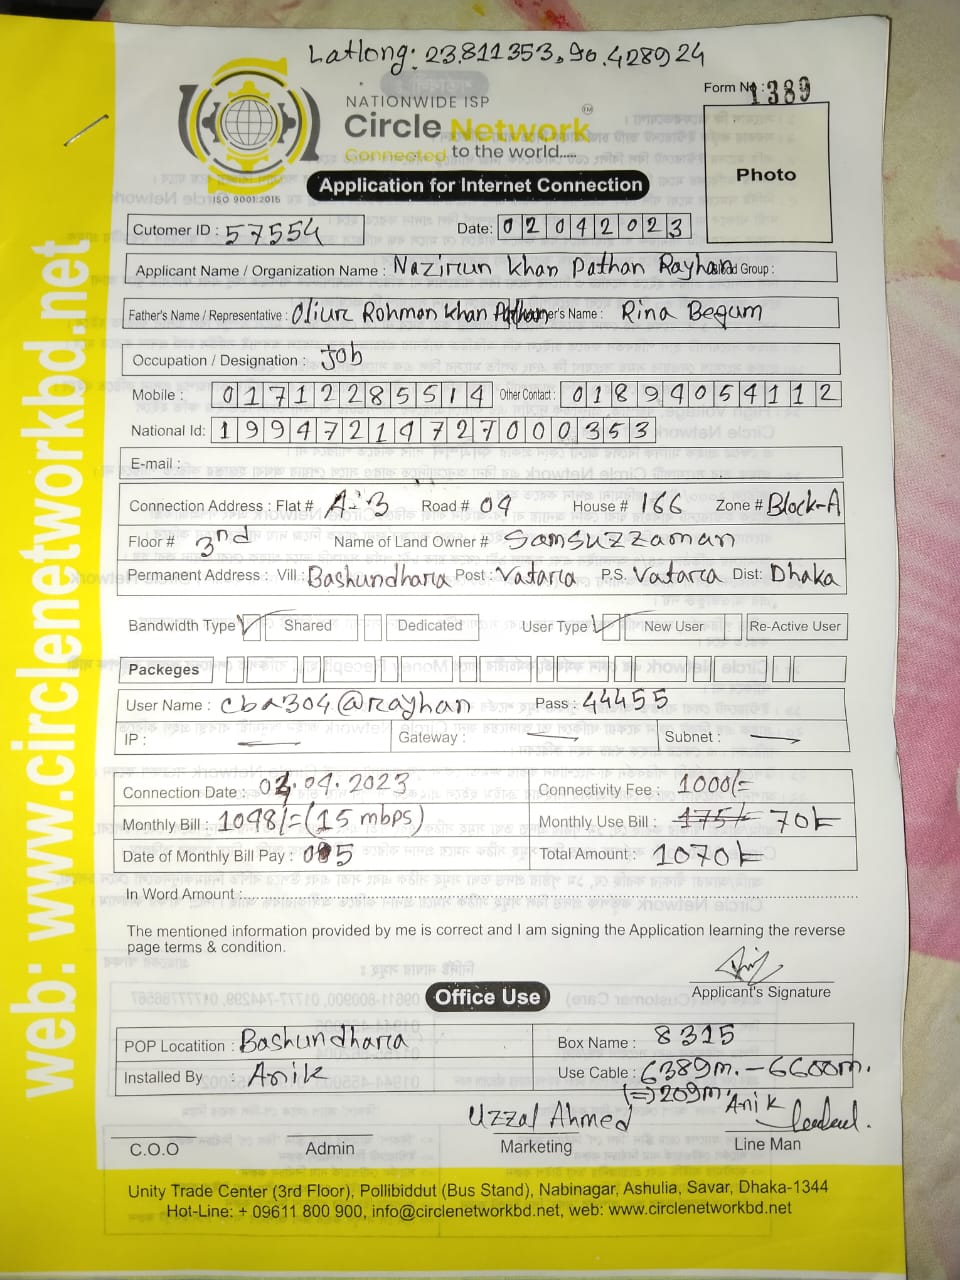 Latlong: 23.811353, 90.428924
Form No : 1389
NATIONWIDE ISP
Circle Network TM
Connected to the world....
ISO 9001:2015
Photo
Application for Internet Connection
Cutomer ID : 57554
Date: 02042023
Applicant Name / Organization Name : Nazirun Khan Pathan Rayhan Group :
Father's Name / Representative : Oliur Rohman Khan Pathan Name : Rina Begum
Occupation / Designation : Job
Mobile : 01712285514 Other Contact : 01894054112
National Id: 19947214727000353
E-mail :
Connection Address : Flat # A-3 Road # 04 House # 166 Zone # Block-A
Floor # 3nd Name of Land Owner # Samsuzzaman
Permanent Address : Vill : Bashundhara Post : Vatara P.S. Vatara Dist: Dhaka
Bandwidth Type Shared Dedicated User Type : New User Re-Active User
Packeges
User Name : cba304@rayhan Pass : 44455
IP : Gateway : Subnet :
Connection Date : 02.04.2023 Connectivity Fee : 1000/=
Monthly Bill : 1098/=(15 mbps) Monthly Use Bill : 175/= 70/=
Date of Monthly Bill Pay : 05 Total Amount : 1070/=
In Word Amount :
The mentioned information provided by me is correct and I am signing the Application learning the reverse
page terms & condition.
Applicant's Signature
Office Use
POP Locatition : Bashundhara Box Name : 8315
Installed By : Anik Use Cable : 6389m. - 6600m.
(=) 209m.
Uzzal Ahmed Anik
C.O.O Admin Marketing Line Man
Unity Trade Center (3rd Floor), Pollibiddut (Bus Stand), Nabinagar, Ashulia, Savar, Dhaka-1344
Hot-Line: + 09611 800 900, info@circlenetworkbd.net, web: www.circlenetworkbd.net
web: www.circlenetworkbd.net